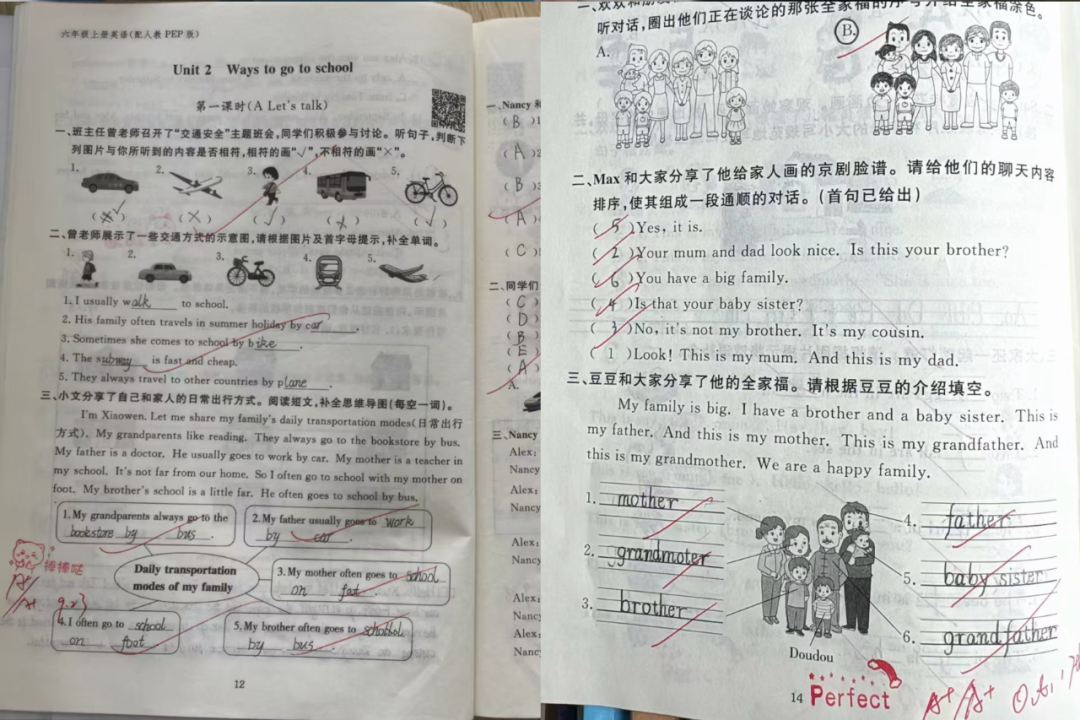 六年级上册英语(配人教 PEP 版)
Unit 2 Ways to go to school
第一课时(A Let's talk)
一、班主任曾老师召开了“交通安全”主题班会,同学们积极参与讨论。听句子,判断下
列图片与你所听到的内容是否相符,相符的画“√”,不相符的画“×”。
1. 2. 3. 4. 5.
(√) (×) (√) (×) (√)
二、曾老师展示了一些交通方式的示意图,请根据图片及首字母提示,补全单词。
1. 2. 3. 4. 5.
1. I usually walk to school.
2. His family often travels in summer holiday by car.
3. Sometimes she comes to school by bike.
4. The subway is fast and cheap.
5. They always travel to other countries by plane.
三、小文分享了自己和家人的日常出行方式。阅读短文,补全思维导图(每空一词)。
I'm Xiaowen. Let me share my family's daily transportation modes(日常出行
方式). My grandparents like reading. They always go to the bookstore by bus.
My father is a doctor. He usually goes to work by car. My mother is a teacher in
my school. It's not far from our home. So I often go to school with my mother on
foot. My brother's school is a little far. He often goes to school by bus.
1. My grandparents always go to the
bookstore by bus.
2. My father usually goes to work
by car.
Daily transportation
modes of my family
3. My mother often goes to school
on foot.
4. I often go to school
on foot.
5. My brother often goes to schobbol
by bus.
棒棒哒
A+
A+ 9.23
12
一、Nancy 和
(B)1
(A)2
(B)3
(A)
(C)
二、同学们
(C)
(D)
(B)
(E)
(A)
A.
三、Nancy
Alex:
Nancy
Alex:
Nancy
Alex:
Nancy
Alex:
Nancy
Alex:
Nancy
听对话,圈出他们正在谈论的那张全家福的序号并给全家福涂色。
A. B.
二、Max 和大家分享了他给家人画的京剧脸谱。请给他们的聊天内容
排序,使其组成一段通顺的对话。(首句已给出)
(5)Yes, it is.
(2)Your mum and dad look nice. Is this your brother?
(6)You have a big family.
(4)Is that your baby sister?
(3)No, it's not my brother. It's my cousin.
(1)Look! This is my mum. And this is my dad.
三、豆豆和大家分享了他的全家福。请根据豆豆的介绍填空。
My family is big. I have a brother and a baby sister. This is
my father. And this is my mother. This is my grandfather. And
this is my grandmother. We are a happy family.
1. mother
2. grandmoter
3. brother
4. father
5. baby sister
6. grandfather
Doudou
14
Perfect
A+/A+